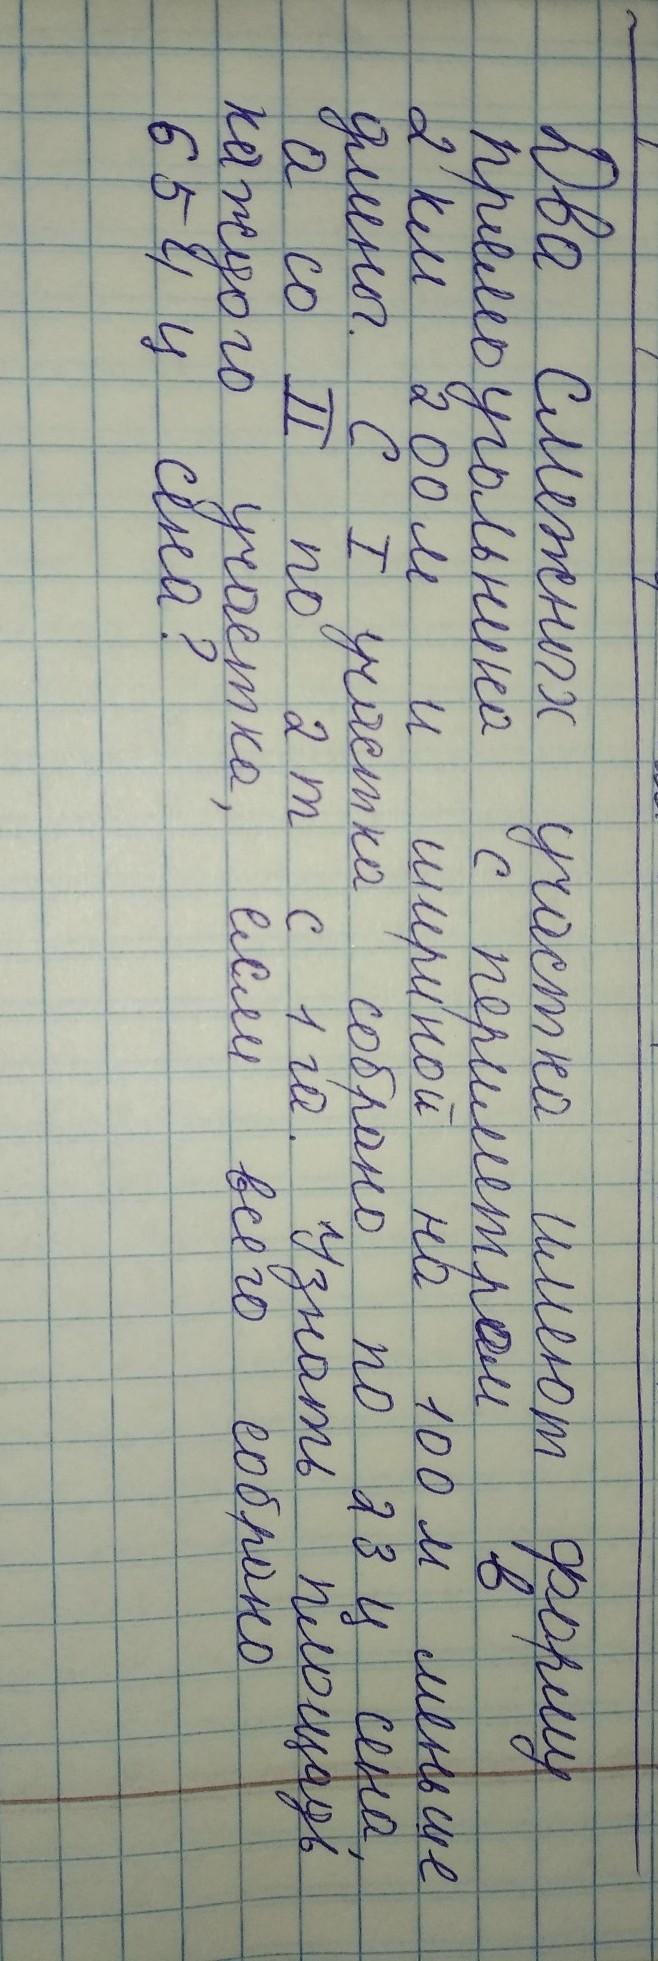 Два смежных участка имеют форму
прямоугольника с периметром в
2 км 200 м и шириной на 100 м меньше
длины. С I участка собрано по 23 ц сена,
а со II по 2 т с 1 га. Узнать площадь
каждого участка, если всего собрано
654 ц сена?